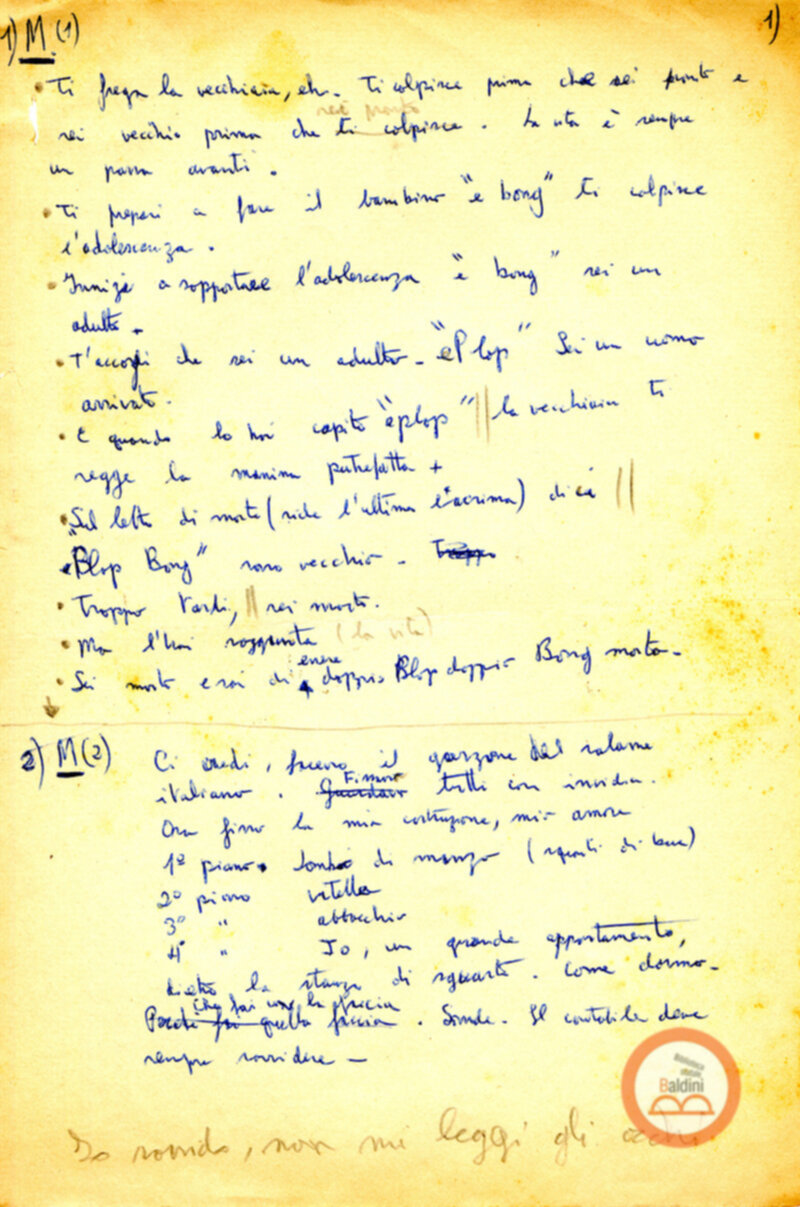 1) M. (1)
1)
• Ti frega la vecchiaia, eh. Ti colpisce prima che sei pronto e
sei pronto
sei vecchio prima che ti colpisce. La vita è sempre
un passo avanti.
• Ti prepari a fare il bambino "e bong" ti colpisce
l'adolescenza.
• Inizi a sopportare l'adolescenza "e bong" sei un
adulto.
• T'accorgi che sei un adulto - "e Plop" Sei un uomo
arrivato.
• E quando lo hai capito "e plop" || la vecchiaia ti
regge la manina putrefatta +
• Sul letto di morte (ride l'ultima lacrima) dici ||
"e Blop Bong" sono vecchio - Troppo
• Troppo tardi, || sei morto.
• Ma l'hai raggiunta (la vita)
• Sei morto e sai di enere doppio Blop doppio Bong morto -
2) M (2)
Ci credi, facevo il garzone del salame
italiano. Guardavo Fissavo tutti con invidia.
Ora fisso la mia costruzione, mio amore
1º piano. di manzo (squarti di bue)
2º piano vitella
3º " abbacchio
4º " Io, un grande appartamento,
dietro la stanza di squarto. Come dormo -
Che fai con la faccia
Perché fai quella faccia. Sorride. Il contabile deve
sempre sorridere —
Io sorrido, non mi leggi gli occhi.
Biblioteca
statale
Baldini